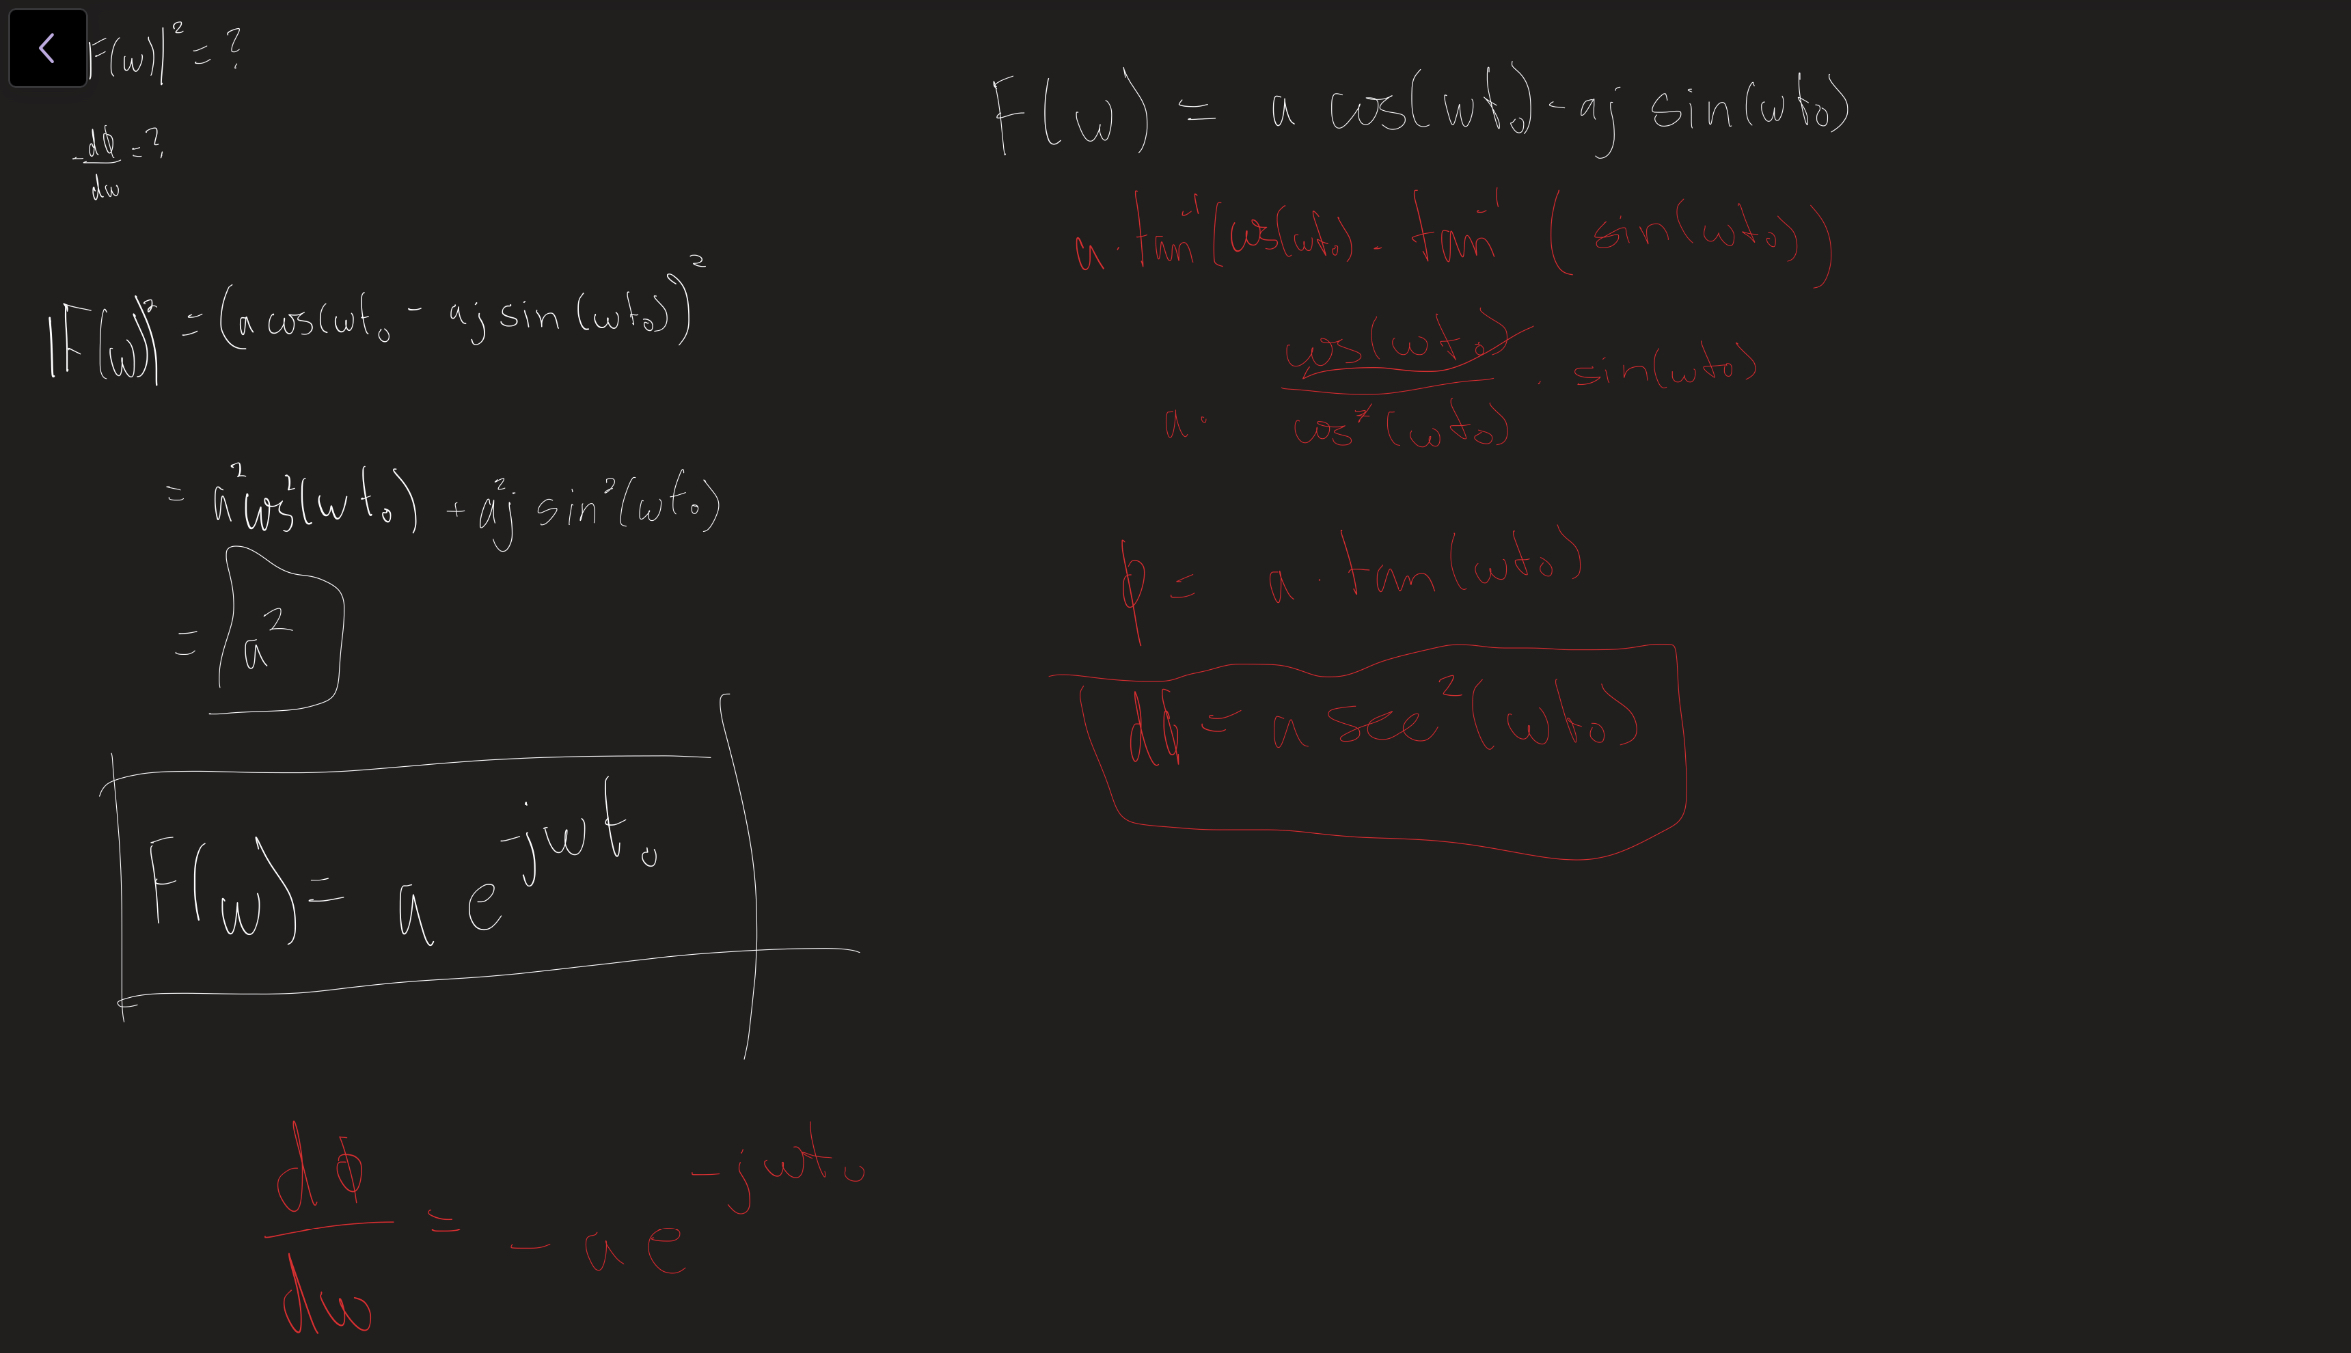 |F(ω)|² = ?
-dφ/dω = ?
|F(ω)|² = (a cos(ωt₀ - aj sin(ωt₀))²
= a²cos²(ωt₀) + a²j sin²(ωt₀)
= a²
F(ω) = a e^-jωt₀
dφ/dω = - a e^-jωt₀
F(ω) = a cos(ωt₀) - aj sin(ωt₀)
a · tan⁻¹(cos(ωt₀) - tan⁻¹(sin(ωt₀))
a · cos(ωt₀)/cos²(ωt₀) · sin(ωt₀)
φ = a · tan(ωt₀)
dφ = a sec²(ωt₀)